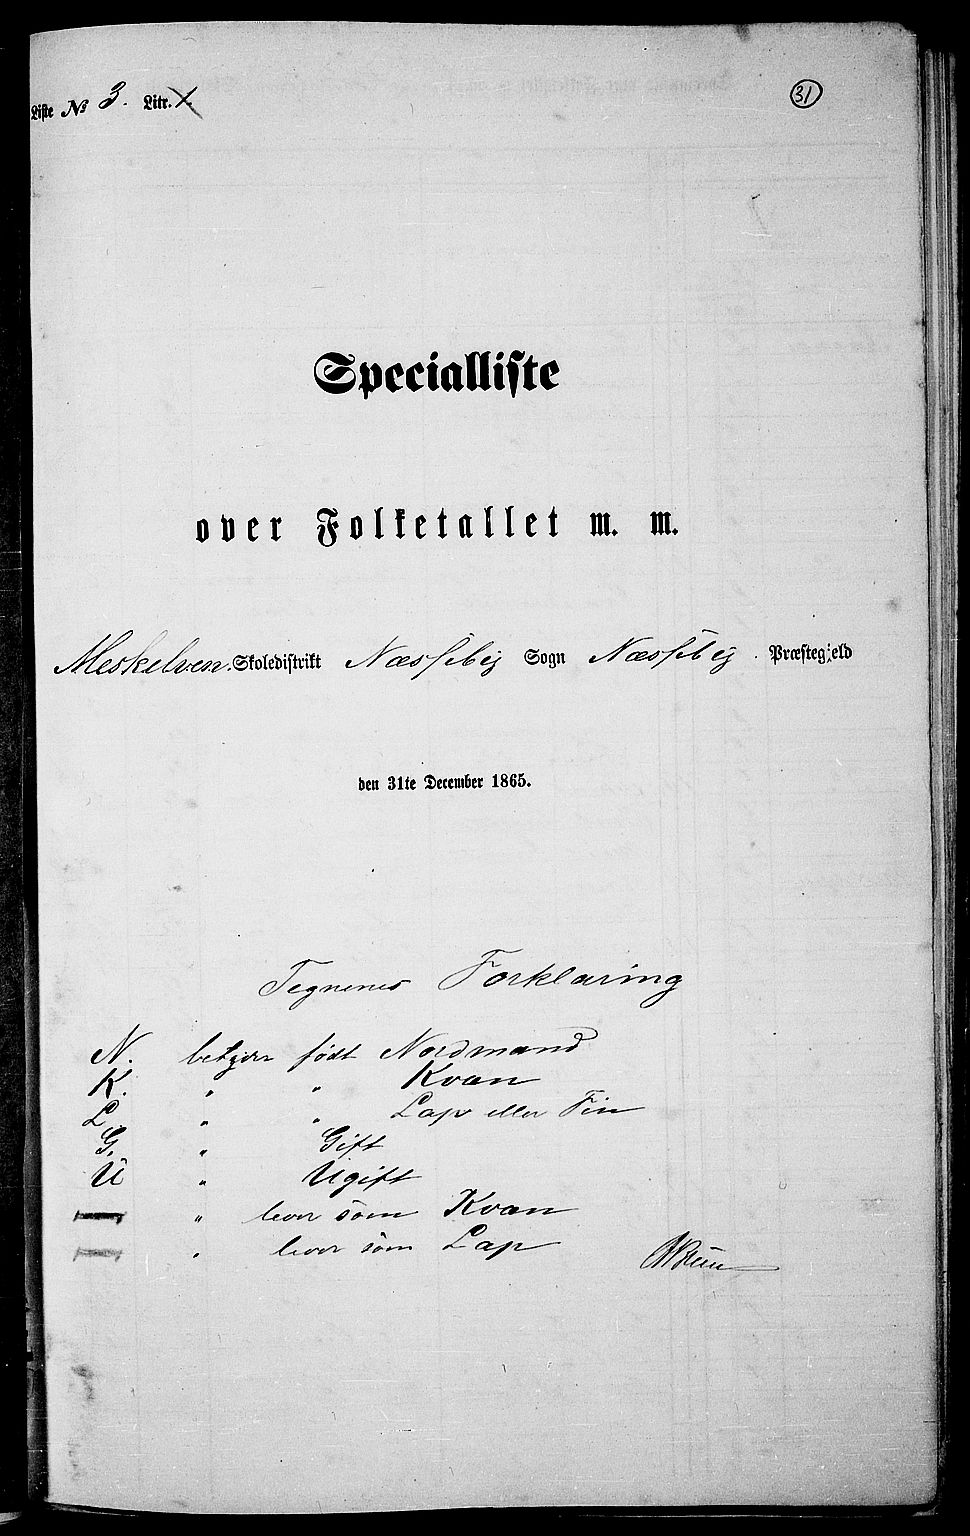 Liste № 3. Litr.
31
Specialliste
over Folketallet m. m.
Meskelven. Skoledistrikt Næssebÿ Sogn Næssebÿ Præstegjeld
den 31te December 1865.
Tegnenes Forklaring
N. betyder født Nordmand
K. " " Kvæn
L. " " Lap eller Fin
G. " Gift
U " Ugift
— " lever som Kvæn
— " lever som Lap